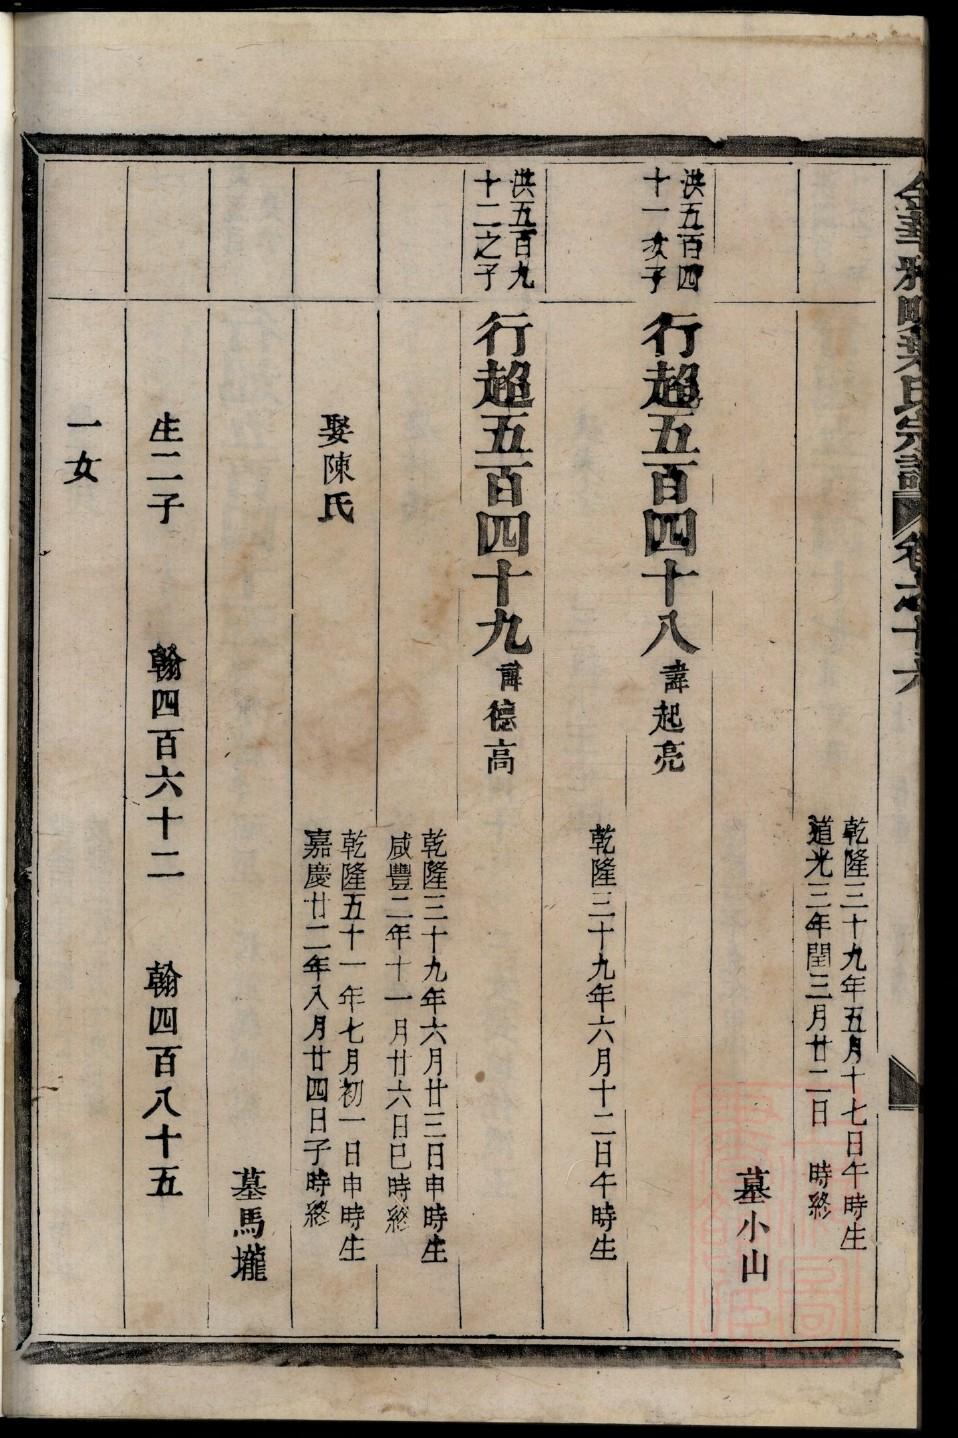 金華雅畈葉氏宗譜 卷之十六
乾隆三十九年五月十七日午時生
道光三年閏三月廿二日 時終
墓小山
洪五百四
十一次子
行超五百四十八 諱起亮
乾隆三十九年六月十二日午時生
洪五百九
十二之子
行超五百四十九 諱德高
乾隆三十九年六月廿三日申時生
咸豐二年十一月廿六日巳時終
娶陳氏
乾隆五十一年七月初一日申時生
嘉慶廿二年八月廿四日子時終
墓馬壠
生二子 翰四百六十二 翰四百八十五
一女